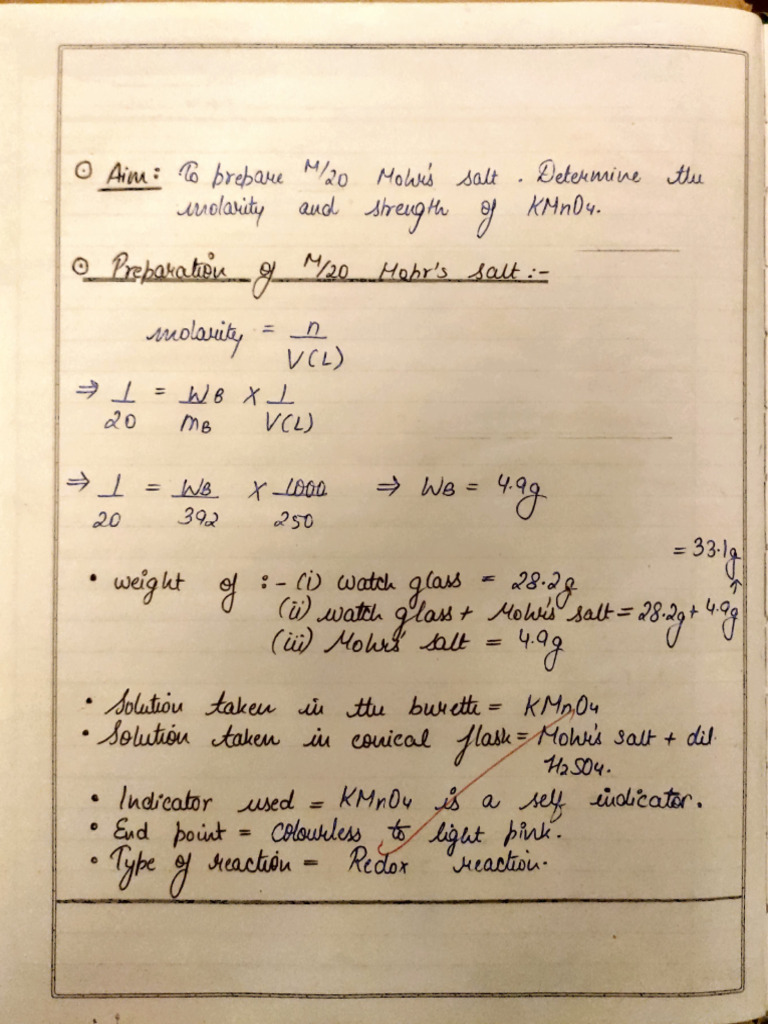 ⊙ Aim: To prepare M/20 Mohr's salt. Determine the
molarity and strength of KMnO4.
⊙ Preparation of M/20 Mohr's salt :-
molarity = n / V(L)
⇒ 1/20 = WB/MB × 1/V(L)
⇒ 1/20 = WB/392 × 1000/250 ⇒ WB = 4.9g
= 33.1g
• weight of :- (i) watch glass = 28.2g
(ii) watch glass + Mohr's salt = 28.2g + 4.9g
(iii) Mohr's salt = 4.9g
• Solution taken in the burette = KMnO4
• Solution taken in conical flask = Mohr's salt + dil.
H2SO4.
• Indicator used = KMnO4 is a self indicator.
• End point = Colourless to light pink.
• Type of reaction = Redox reaction.